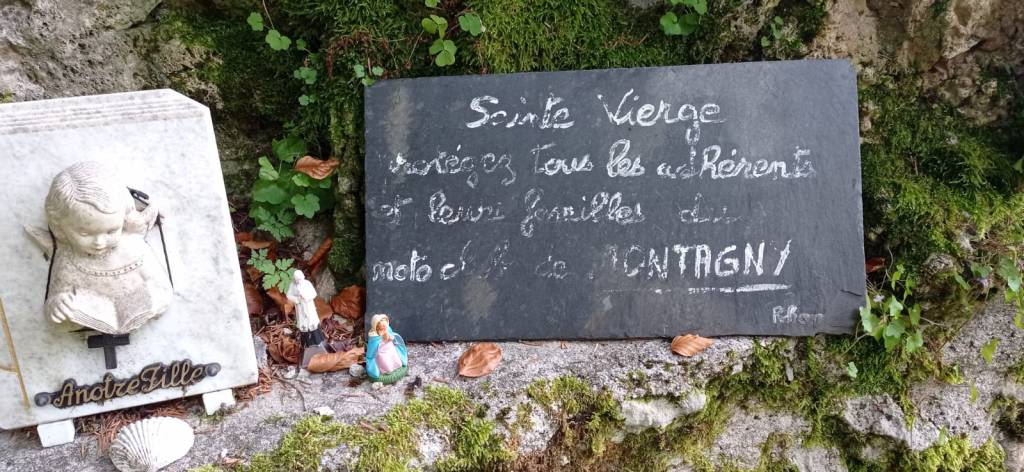 Sainte Vierge
protégez tous les adhérents
et leurs familles du
moto club de MONTAGNY
A notre Fille